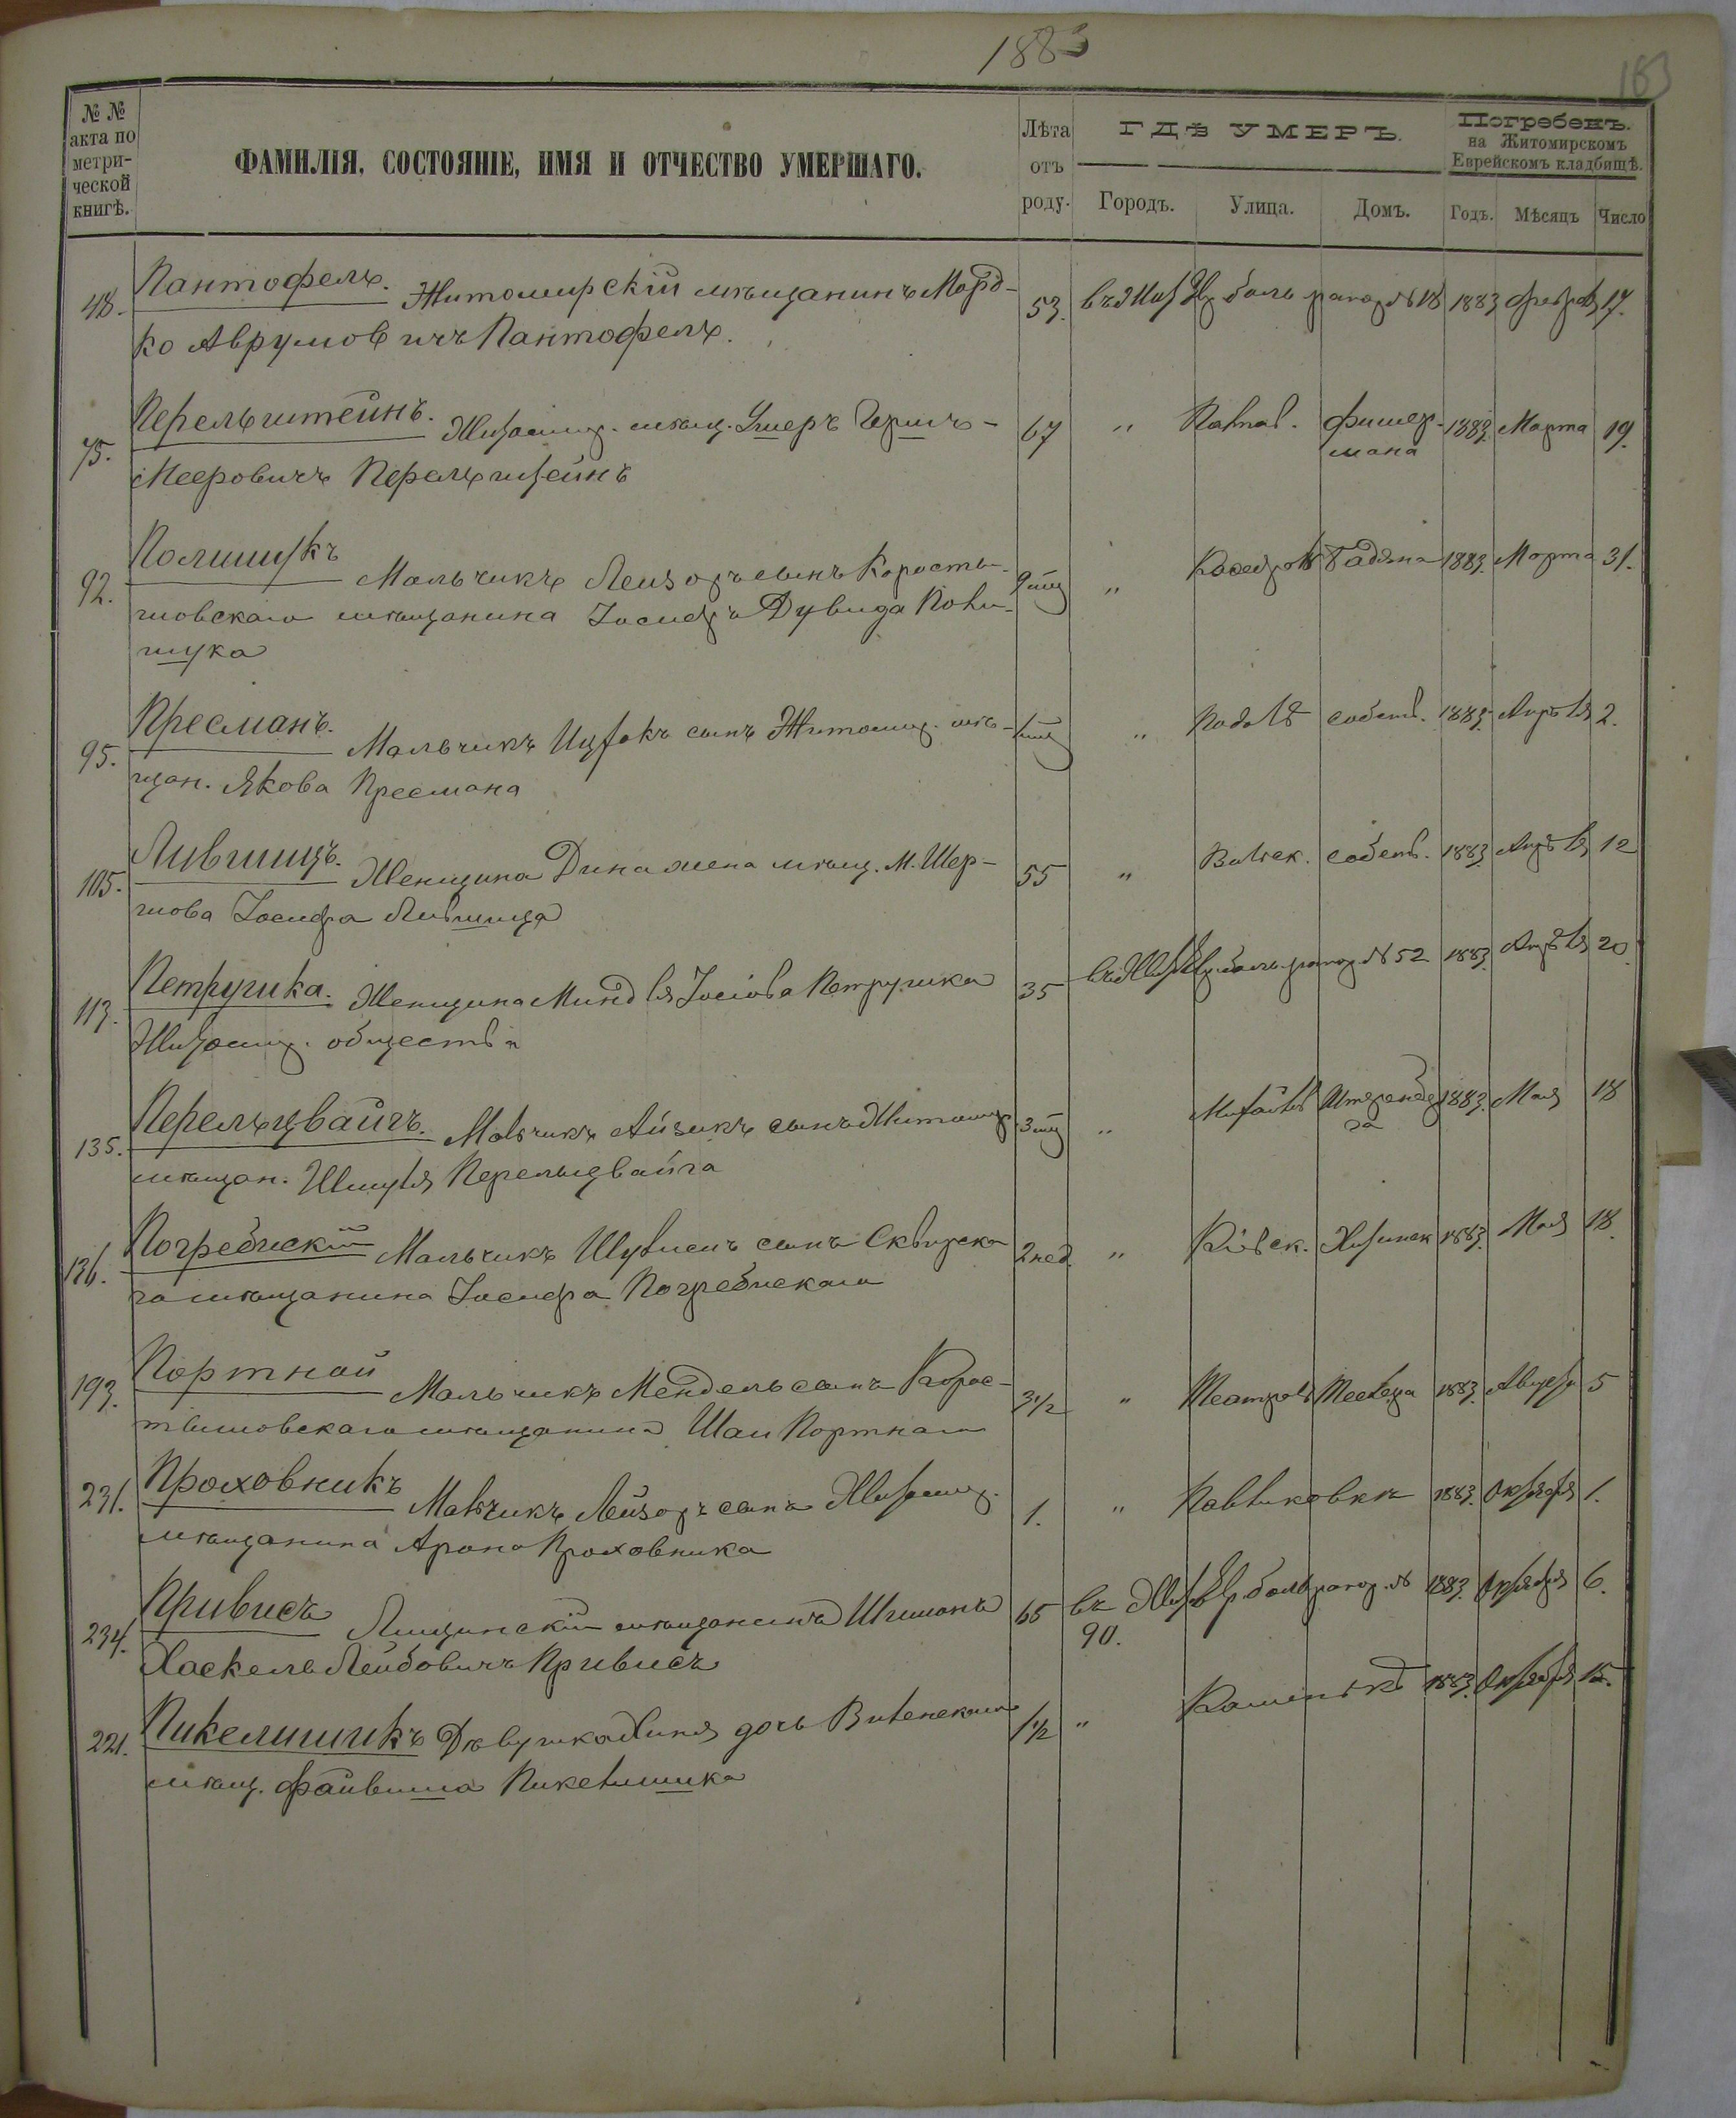 1883
163
№ №
акта по
метри-
ческой
книгѣ.
ФАМИЛІЯ, СОСТОЯНІЕ, ИМЯ И ОТЧЕСТВО УМЕРШАГО.
Лѣта
отъ
роду.
ГДѢ УМЕРЪ.
Городъ. Улица. Домъ.
Погребенъ.
на Житомирскомъ
Еврейскомъ кладбищѣ.
Годъ. Мѣсяцъ Число
48. Пантофель. Житомирскій мѣщанинъ Морд- 53. въ Жит. Евр. боль 1883 Февраля 17.
ко Аврумовичъ Пантофель.
75. Перельштейнъ. Житомир. мѣщ. Умеръ Гершъ- 67 " Павлов. Фишер- 1883. Марта 19.
мана
Мееровичъ Перельштейнъ
92. Полищукъ Мальчикъ Лейзоръ сынъ Коросты- 9 мѣ " 1883. Марта 31.
шовскаго мѣщанина Іосифъ Дувида Поли-
щука
95. Пресманъ. Мальчикъ Ицхокъ сынъ Житомир. мѣ- " Подоль собств. 1883. Апрѣля 2.
щан. Якова Пресмана
105. Лившицъ. Женщина Дина жена мѣщ. М. Шер- 55 " Вильск. собств. 1883 Апрѣля 12
шова Іосифа Лившица
113. Петрушка. Женщина Миндля Іосіова Петрушка 35 въ Жит. Евр. боль № 52 1883. Апрѣля 20
Житомир. общества
135. Перельцвайгъ. Мальчикъ Айзикъ сынъ Житомир 3 мѣ " Михайлов 1883. Мая 18
мѣщан. Шмуля Перельцвайга
136. Погребискій Мальчикъ сынъ Сквирска 2 нед. " Кіевск. 1883. Мая 18.
го мѣщанина Іосифа Погребискаго
193. Портной Мальчикъ Мендель сынъ Корос- 3 1/2 " Театров 1883. Августа 5
тышовскаго мѣщанина Шаи Портнаго
231. Проховникъ Мальчикъ Лейзоръ сынъ Житомир. 1. " Павликовка 1883. Октября 1.
мѣщанина Арона Проховника
234. Кривисъ мѣщанинъ Шимонъ 65 въ Жит. Евр. боль № 1883. Октября 6.
90.
Хаскель Лейбовичъ Кривисъ
221. Пикельшикъ Дѣвушка Хиня дочь Виленскаго 1 1/2 " 1883. Октября 15.
мѣщ. Файвиша Пикельшика